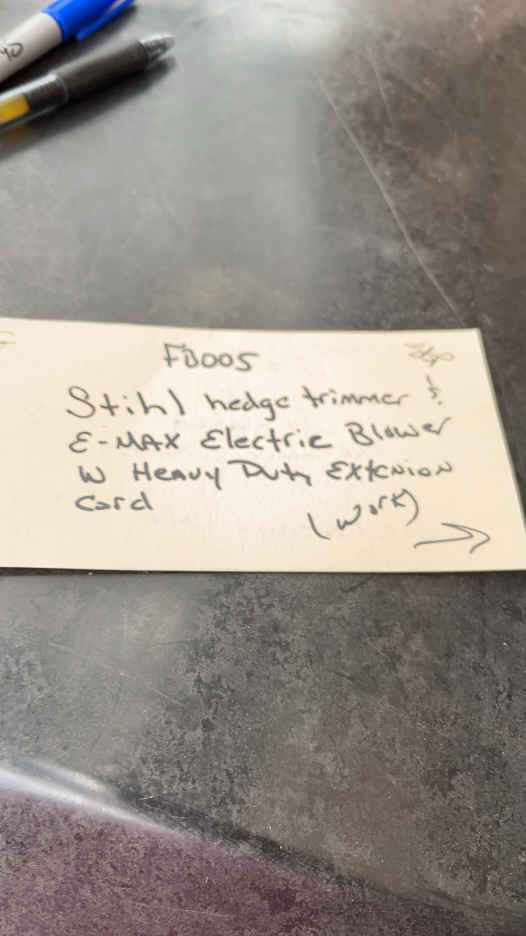 FB005
Stihl hedge trimmer
E-MAX Electric Blower
W Heavy Duty Extension
Cord
(work)